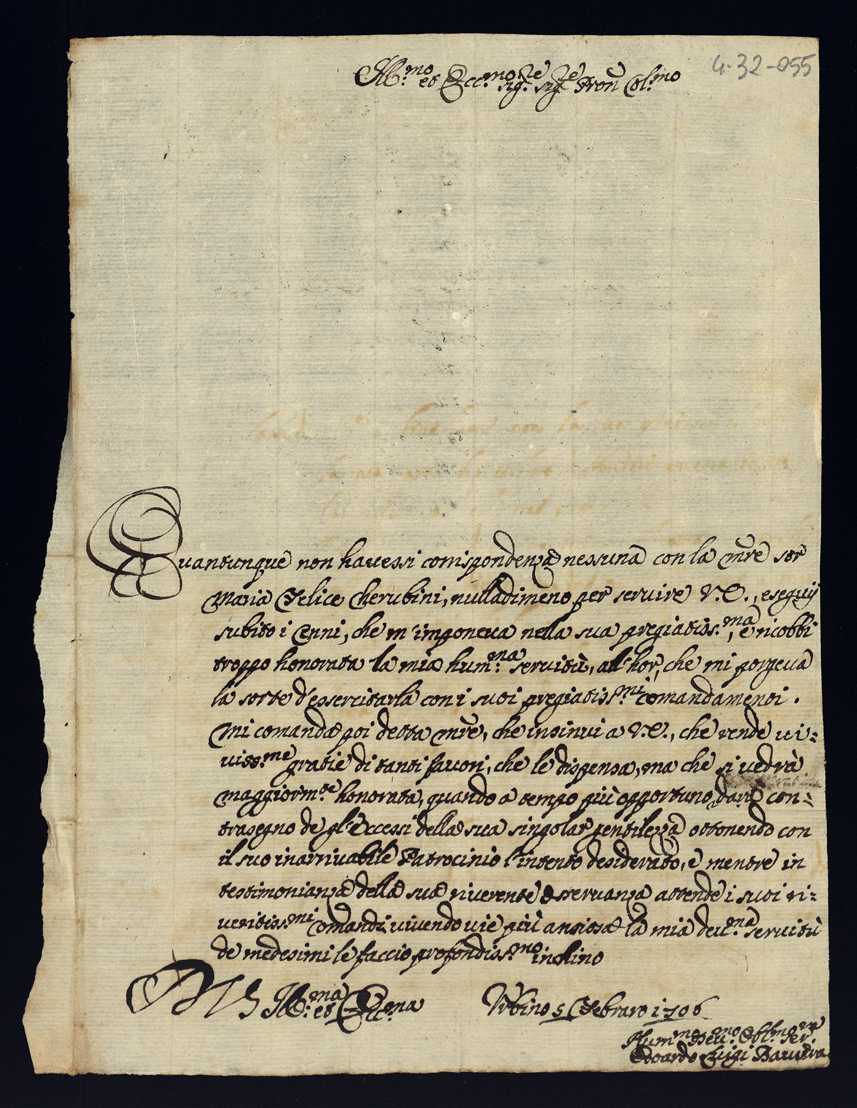 4-32-055
Ill.mo et Ecc.mo Sig.re Sig.re Pron Col.mo
Quantunque non havessi corrispondenza nessuna con la mre sor
Maria Felice Cherubini, nulladimeno per servire V.E., eseguij
subito i Cenni, che m'imponeva nella sua pregiatiss.ma, e ricobbi
troppo honorata la mia hum.ma servitù, all'hor, che mi porgeva
la sorte d'essercitarla con i suoi pregiatiss.mi comandamenti.
Mi comanda poi detta mre, che insinui a V.E., che rende vi=
viss.me gratie di tanti favori, che le dispensa, ma che si vedrà
maggiorm.te honorata, quando a tempo più opportuno darà con=
trasegno de gl'Eccessi della sua singolar gentilezza ottonendo con
il suo inarrivabile Patrocinio l'intento desiderato, e mentre in
testimonianza della sua riverente osservanza attende i suoi ri=
veritiss.mi comandi, vivendo vie più ansiosa la mia dev.ma servitù
de medesimi le faccio profondiss.mo inchino
D V S Ill.ma et Ecc.ma Urbino 5 Febraro 1706
Hum.mo Dev.mo Obl.mo Ser.re
Edoardo Luigi